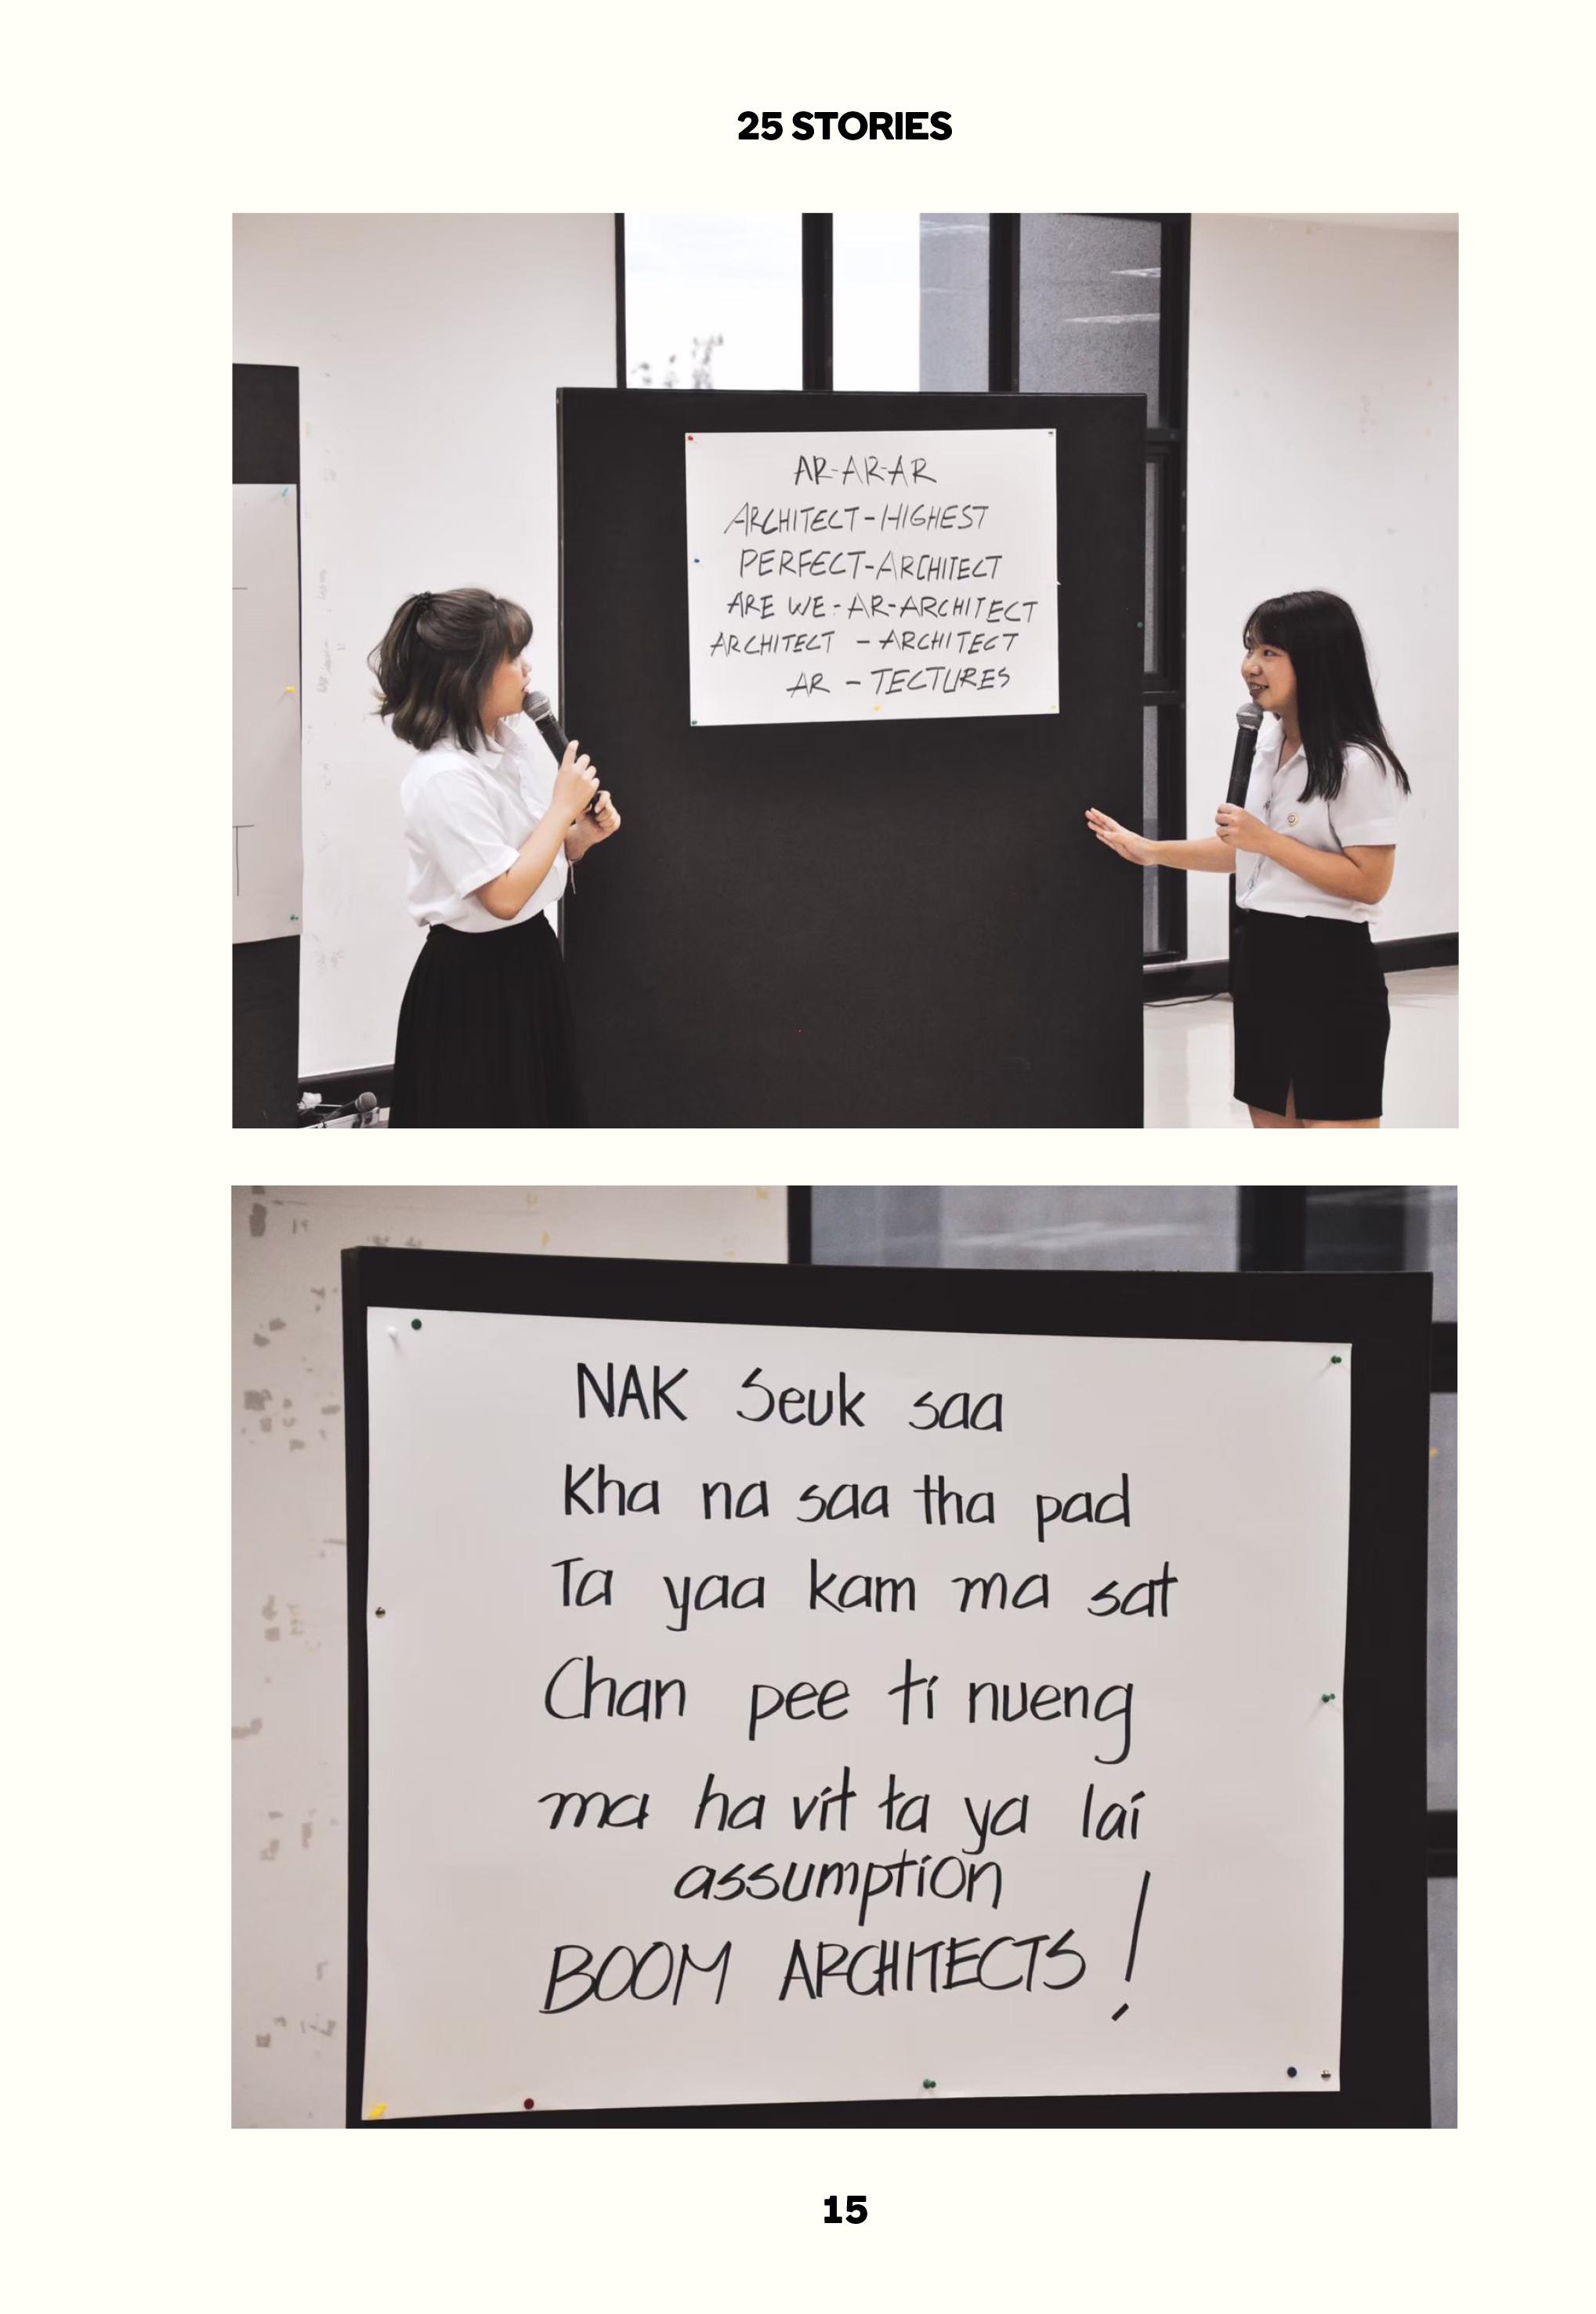 25 STORIES
AR-AR-AR
ARCHITECT-HIGHEST
PERFECT-ARCHITECT
ARE WE-AR-ARCHITECT
ARCHITECT - ARCHITECT
AR - TECTURES
NAK Seuk saa
Kha na saa tha pad
Ta yaa kam ma sat
Chan pee ti nueng
ma ha vit ta ya lai
assumption
BOOM ARCHITECTS !
15